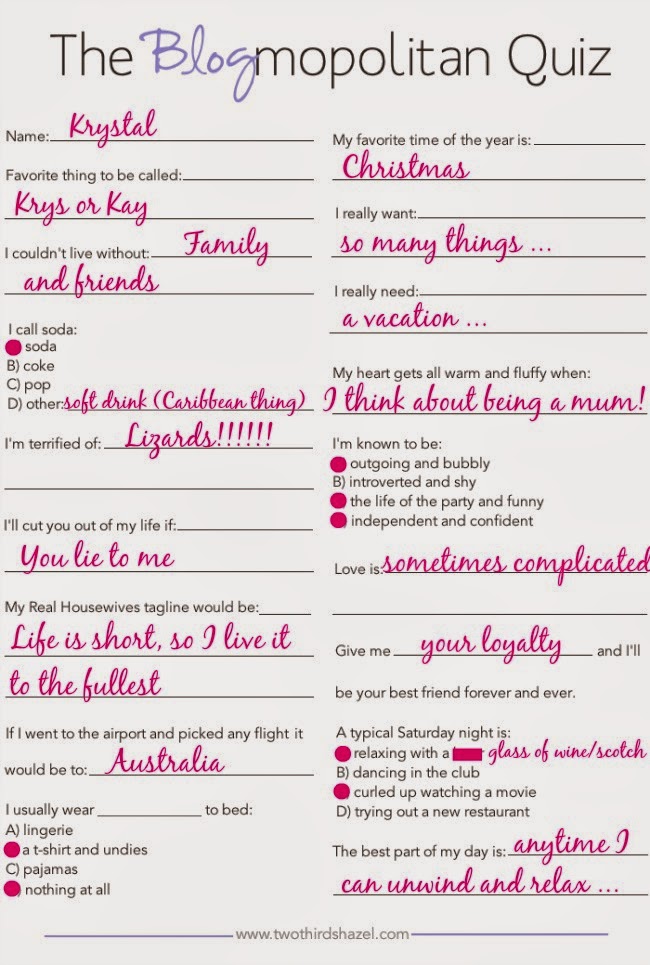 The Blogmopolitan Quiz
Name: Krystal
Favorite thing to be called:
Krys or Kay
I couldn't live without: Family
and friends
I call soda:
soda
B) coke
C) pop
D) other: soft drink (Caribbean thing)
I'm terrified of: Lizards!!!!!!
I'll cut you out of my life if:
You lie to me
My Real Housewives tagline would be:
Life is short, so I live it
to the fullest
If I went to the airport and picked any flight it
would be to: Australia
I usually wear ____________ to bed:
A) lingerie
a t-shirt and undies
C) pajamas
nothing at all
My favorite time of the year is:
Christmas
I really want:
so many things ...
I really need:
a vacation ...
My heart gets all warm and fluffy when:
I think about being a mum!
I'm known to be:
outgoing and bubbly
B) introverted and shy
the life of the party and funny
independent and confident
Love is: sometimes complicated
Give me your loyalty and I'll
be your best friend forever and ever.
A typical Saturday night is:
relaxing with a glass of wine/scotch
B) dancing in the club
curled up watching a movie
D) trying out a new restaurant
The best part of my day is: anytime I
can unwind and relax ...
www.twothirdshazel.com